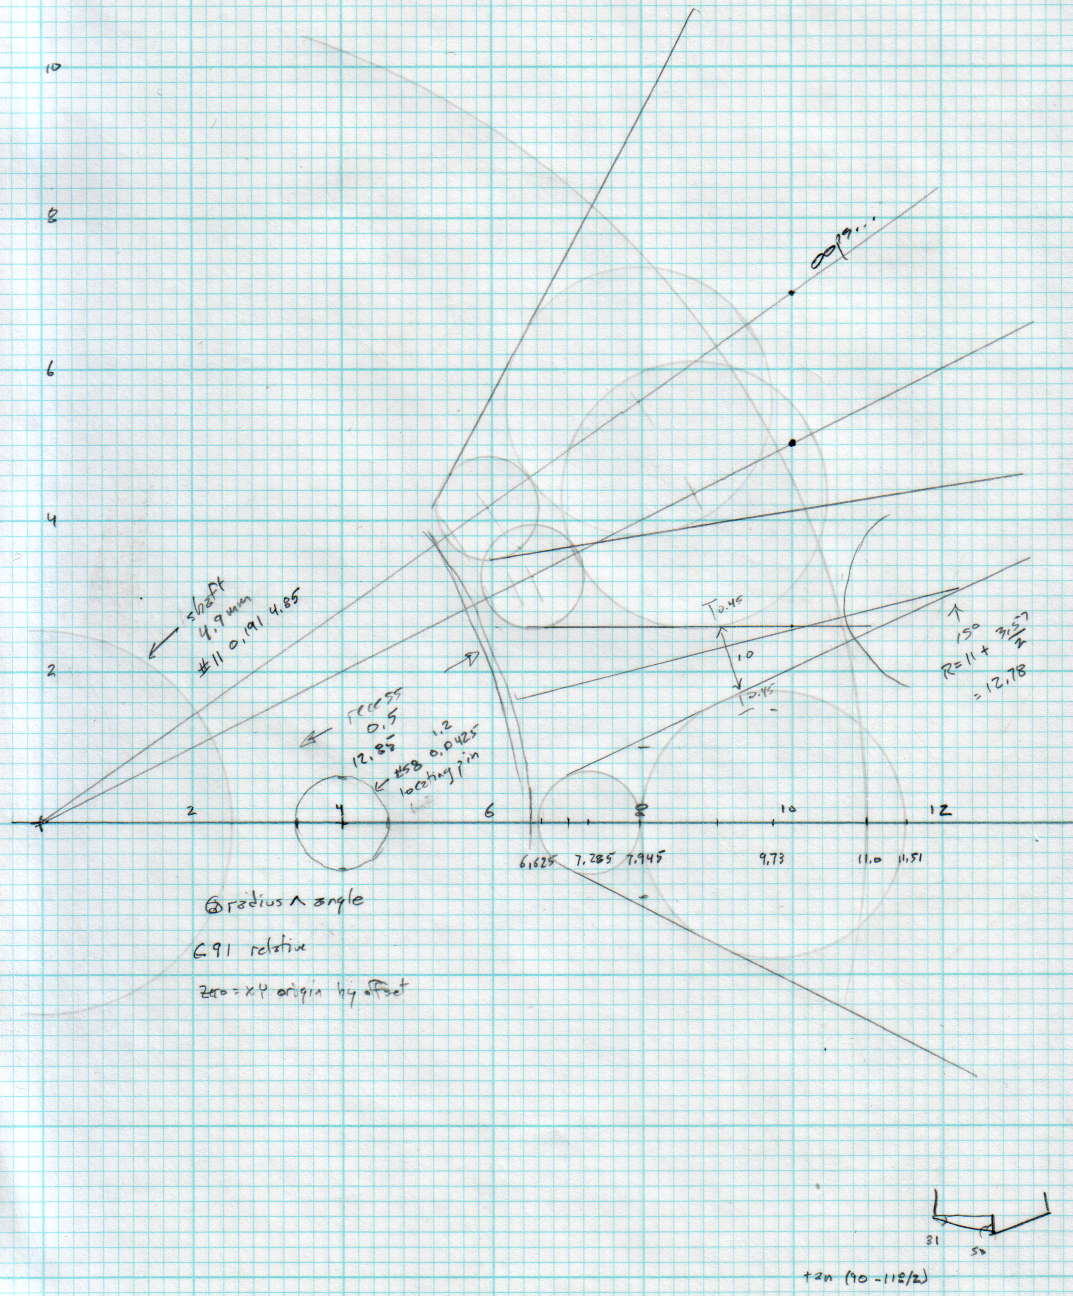 10
8
oops...
6
4
shaft
4.9 mm
#11 0.191 4.85
T 0.45
15°
R = 11 + 3.57/2
= 12.78
2
10
T 0.45
recess
0.5
12.85
1.2
#58 0.0425
locating pin
2 4 6 8 10 12
6.625 7.285 7.945 9.73 11.0 11.51
radius ^ angle
G91 relative
zero = XY origin by offset
31
50
tan (90 - 118/2)